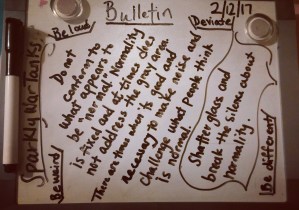 Bulletin
2/12/17
Sparkly War Tanks
Be loud
Deviate
Do not
conform to
what appears to
be "normal." Normality
is fixed and at times does
not address the gray areas.
There are times when its good and
necessary to make noise and
challenge what people think
is normal.
Shatter glass and
break the silence about
normality.
Be weird
Be different